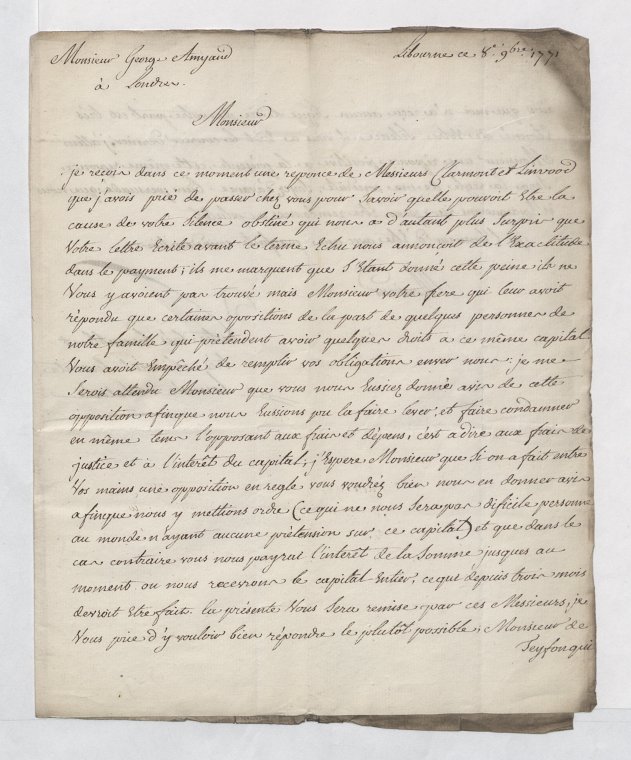 Monsieur George Amyand
Libourne ce 8e. 9bre. 1771
à Londres.
Monsieur
je recois dans ce moment une reponce de Messieurs Clarmont et Linwood
que j'avois prié de passer chez vous pour Savoir quelle pouvoit Etre la
cause de votre Silence obstiné qui nous a d'autant plus Surpris que
Votre lettre Ecrite avant le terme Echu nous annonçoit de l'Exactitude
dans le payment; ils me marquent que S'Etant donné cette peine ils ne
Vous y avoient pas trouvé mais Monsieur votre frere qui leur avoit
répondu que certaines oppositions de la part de quelques personnes de
notre famille qui prétendent avoir quelques droits a ce même capital
Vous avoit Empêché de remplir vos obligations enver nous: je me
Serois attendu Monsieur que vous nous Eussiez donné avis de cette
opposition afinque nous Eussions pu la faire lever, et faire condamner
en même tems l'opposant aux frais et dépens, c'est a dire aux frais de
justice et à l'intérêt du capital; j'Espere Monsieur que Si on a fait entre
Vos mains une opposition en regle vous voudrez bien nous en donner avis
afinque nous y mettions ordre (ce qui ne nous Sera pas dificile personne
au monde n'ayant aucune prétension sur ce capital) et que dans le
cas contraire vous nous payrai l'intérêt de la Somme jusques au
moment ou nous recevrons le capital Entier, ce qui depuis trois mois
devroit Etre fait. la présente Vous Sera remise par ces Messieurs, je
Vous prie d'y vouloir bien répondre le plutôt possible, Monsieur de
Teyfonquil